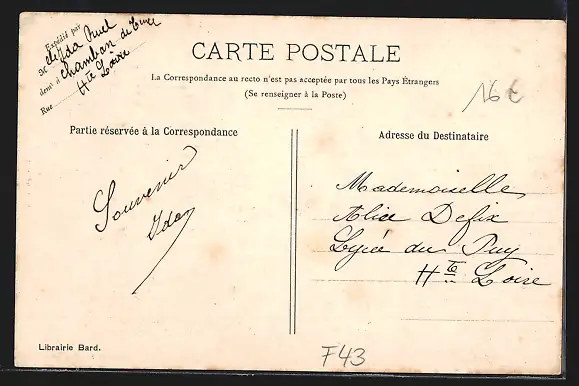 Expédié par
M Ida
demt à Chambon de Tence
Rue Hte Loire
CARTE POSTALE
La Correspondance au recto n'est pas acceptée par tous les Pays Étrangers
(Se renseigner à la Poste)
16€
Partie réservée à la Correspondance
Adresse du Destinataire
Souvenir
Ida
Mademoiselle
Alice Defix
Lycée du Puy
Hte Loire
Librairie Bard.
F43